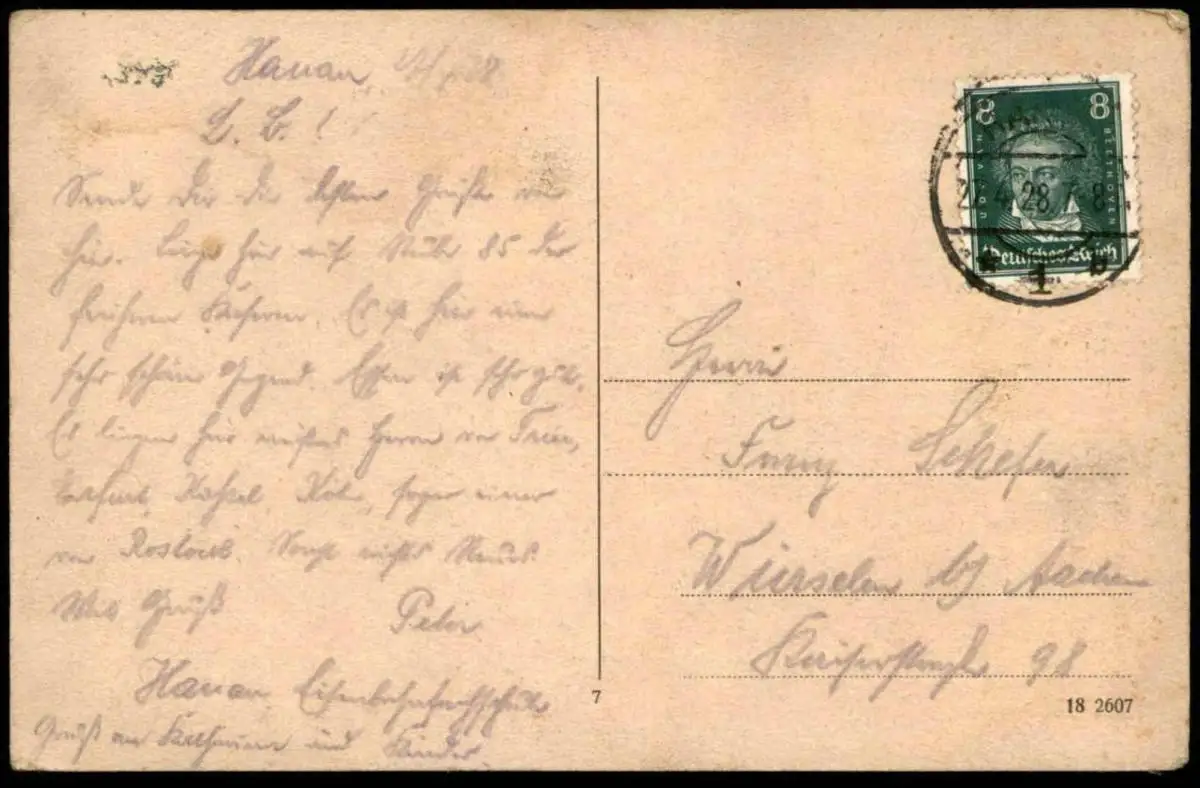 Hanau,
L. B.!
Sende Dir die besten Grüße von
hier. Liege hier auf Stube 85 der
früheren Kaserne. Es ist hier eine
sehr schöne Gegend. Essen ist sehr gut.
Es liegen hier meistens Herrn von Trier,
Kassel, Köln, sogar einer
von Rostock. Sonst nichts Neues.
Gruß Peter
Hanau Eisenbahnfachschule
Gruß an Katharina und Kinder.
8 8
L. V. BEETHOVEN
Deutsches Reich
27.4.28. 7-8
* 1 b
Herrn
Franz Schefer
Würselen b/ Aachen
Kaiserstraße 98
7
18 2607